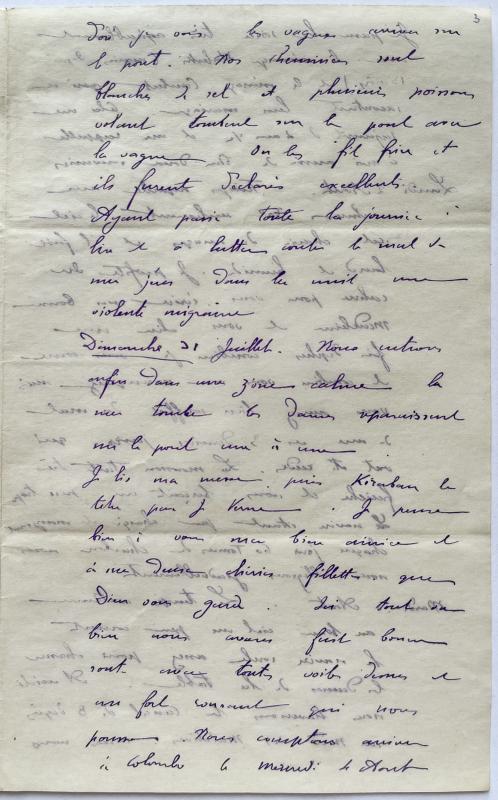 3
D'où je vois les vagues arriver sur
le pont. Nos cheminées sont
blanches de sel et plusieurs poissons
volant tombent sur le pont avec
la vague. On les fit frire et
ils furent déclarés excellents.
Ayant passé toute la journée à
lire et à lutter contre le mal de
mer j'eus dans la nuit une
violente migraine
Dimanche 31 Juillet. Nous entrons
enfin dans une zone calme la
mer tombe les dames apparaissent
sur le pont une à une.
Je lis ma messe puis Kéraban le
têtu par J. Verne. Je pense
bien à vous ma bien aimée et
à mes deux chéries fillettes que
Dieu vous garde. Ici tout va
bien nous avons fait bonne
route avec toutes voiles dehors et
un fort courant qui nous
pousse. Nous comptons arriver
à Colombo le mercredi Août